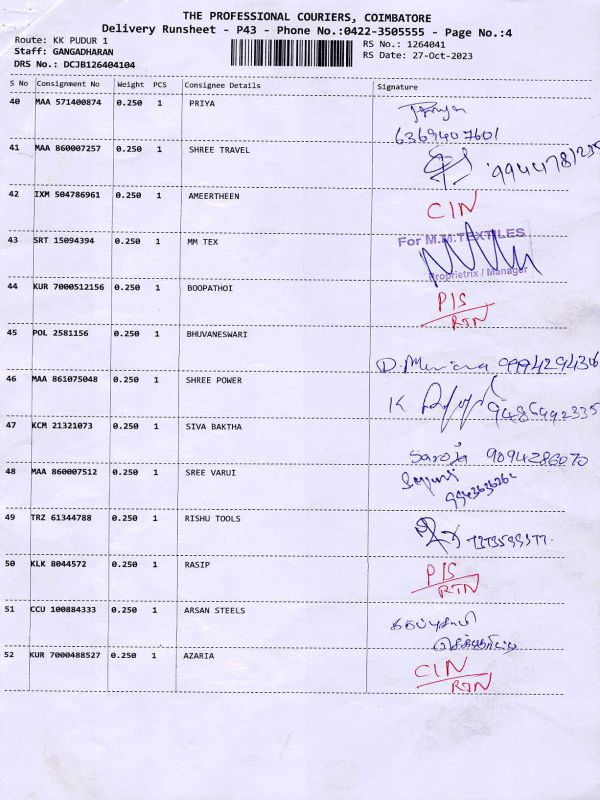 THE PROFESSIONAL COURIERS, COIMBATORE
Delivery Runsheet - P43 - Phone No.:0422-3505555 - Page No.:4
Route: KK PUDUR 1 RS No.: 1264041
Staff: GANGADHARAN RS Date: 27-Oct-2023
DRS No.: DCJB126404104
S No Consignment No Weight PCS Consignee Details Signature
40 MAA 571400874 0.250 1 PRIYA
6369407601
41 MAA 860007257 0.250 1 SHREE TRAVEL
42 IXM 504786961 0.250 1 AMEERTHEEN CIN
43 SRT 15094394 0.250 1 MM TEX For M.M.TEXTILES
Proprietrix / Manager
44 KUR 7000512156 0.250 1 BOOPATHOI P/S
RTN
45 POL 2581156 0.250 1 BHUVANESWARI
46 MAA 861075048 0.250 1 SHREE POWER K 9486992335
47 KCM 21321073 0.250 1 SIVA BAKTHA Saroja 9094286070
48 MAA 860007512 0.250 1 SREE VARUI
49 TRZ 61344788 0.250 1 RISHU TOOLS
50 KLK 8044572 0.250 1 RASIP P/S
RTN
51 CCU 100884333 0.250 1 ARSAN STEELS
52 KUR 7000488527 0.250 1 AZARIA CIN
RTN